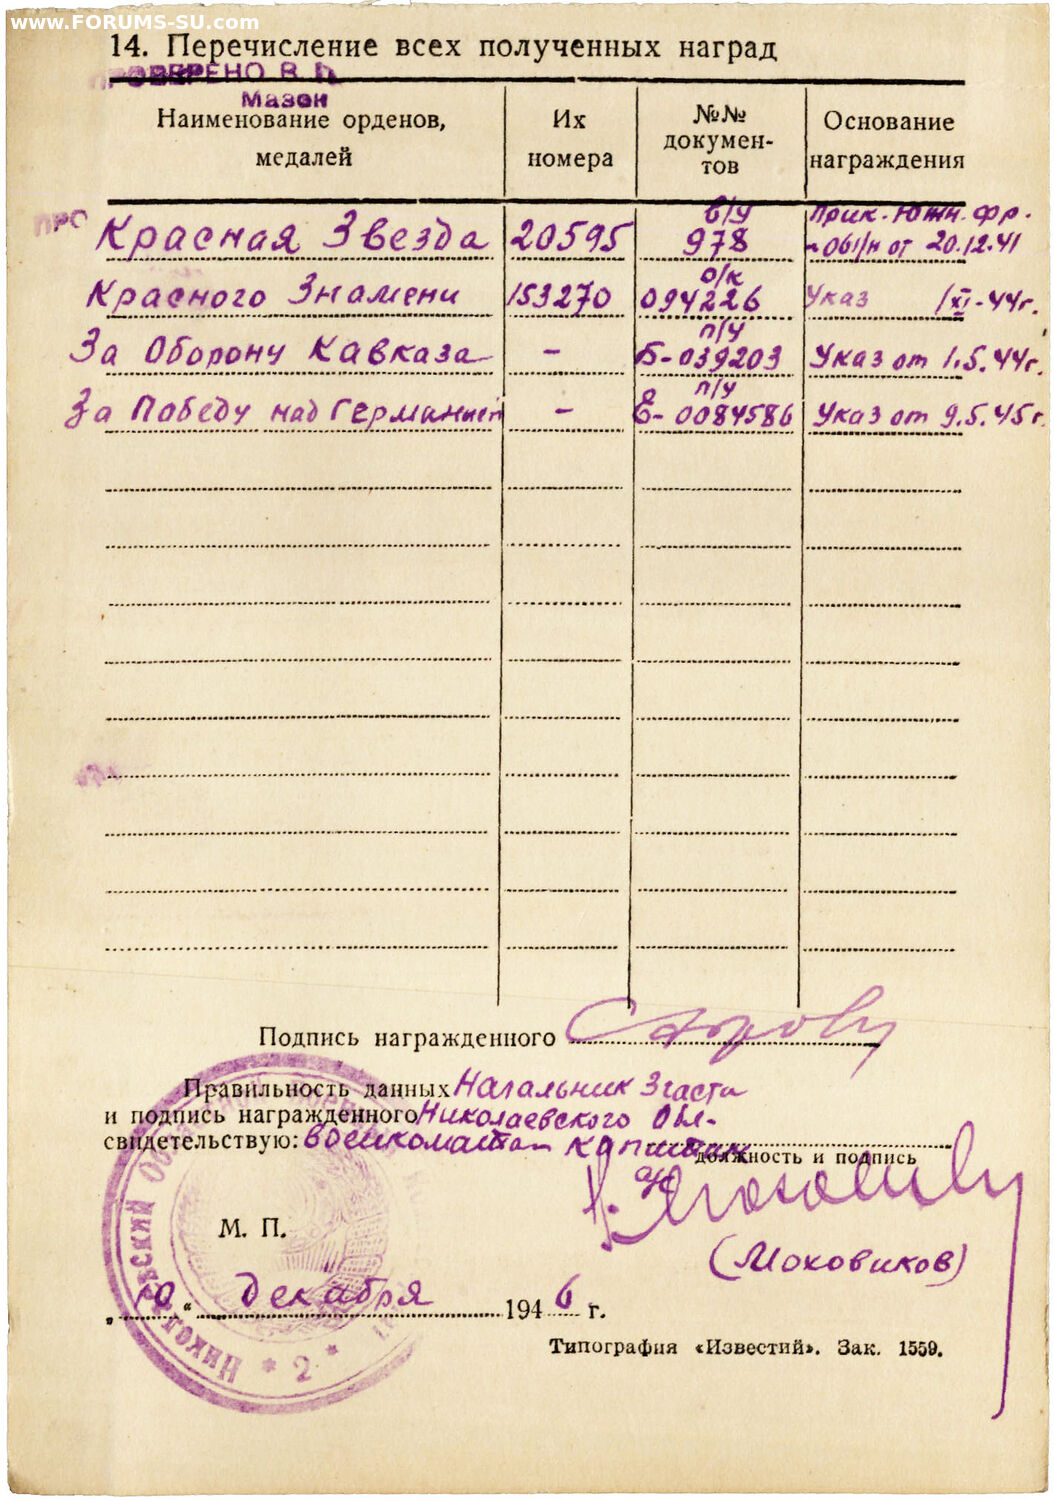 www.FORUMS-SU.com
14. Перечисление всех полученных наград
ПРОВЕРЕНО В
Мазон
Наименование орденов, медалей
Их номера
№№ докумен-тов
Основание награждения
ПРО
Красная Звезда 20595 в/у 978 Прик. Южн. фр. №061/н от 20.12.41
Красного Знамени 153270 о/к 094226 Указ 1/XI-44г.
За Оборону Кавказа – п/у Б-039203 Указ от 1.5.44г.
За Победу над Германией – п/у Е-0084586 Указ от 9.5.45г.
Подпись награжденного
Правильность данных Начальник 3 части
и подпись награжденного Николаевского Обл-
свидетельствую: военкомата капитан
должность и подпись
М. П.
(Моховиков)
„10“ декабря 1946 г.
Типография «Известий». Зак. 1559.
* 2 *